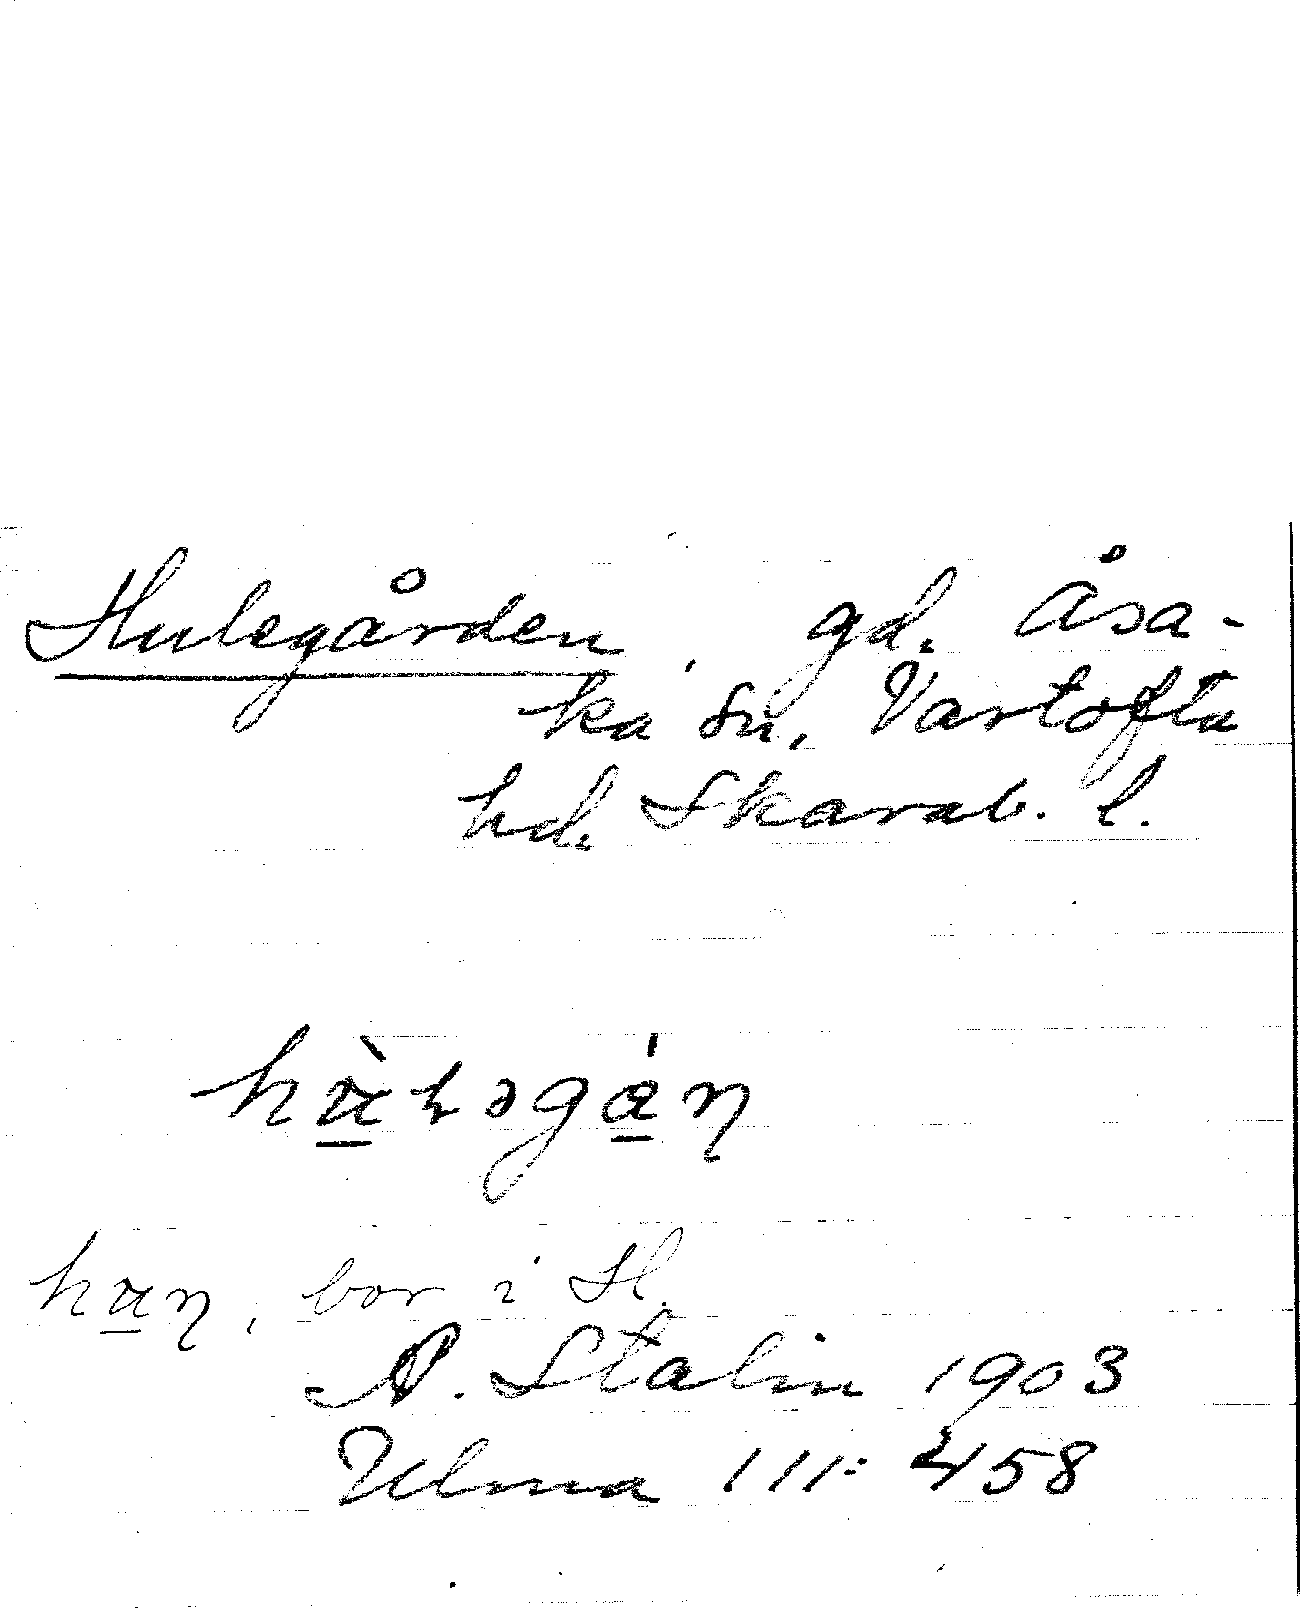 Hulegården, gd. Åsa-
ka sn, Vartofta
hd. Skarab. l.
bor i H.
A. Stalin 1903
Ulma 111:458